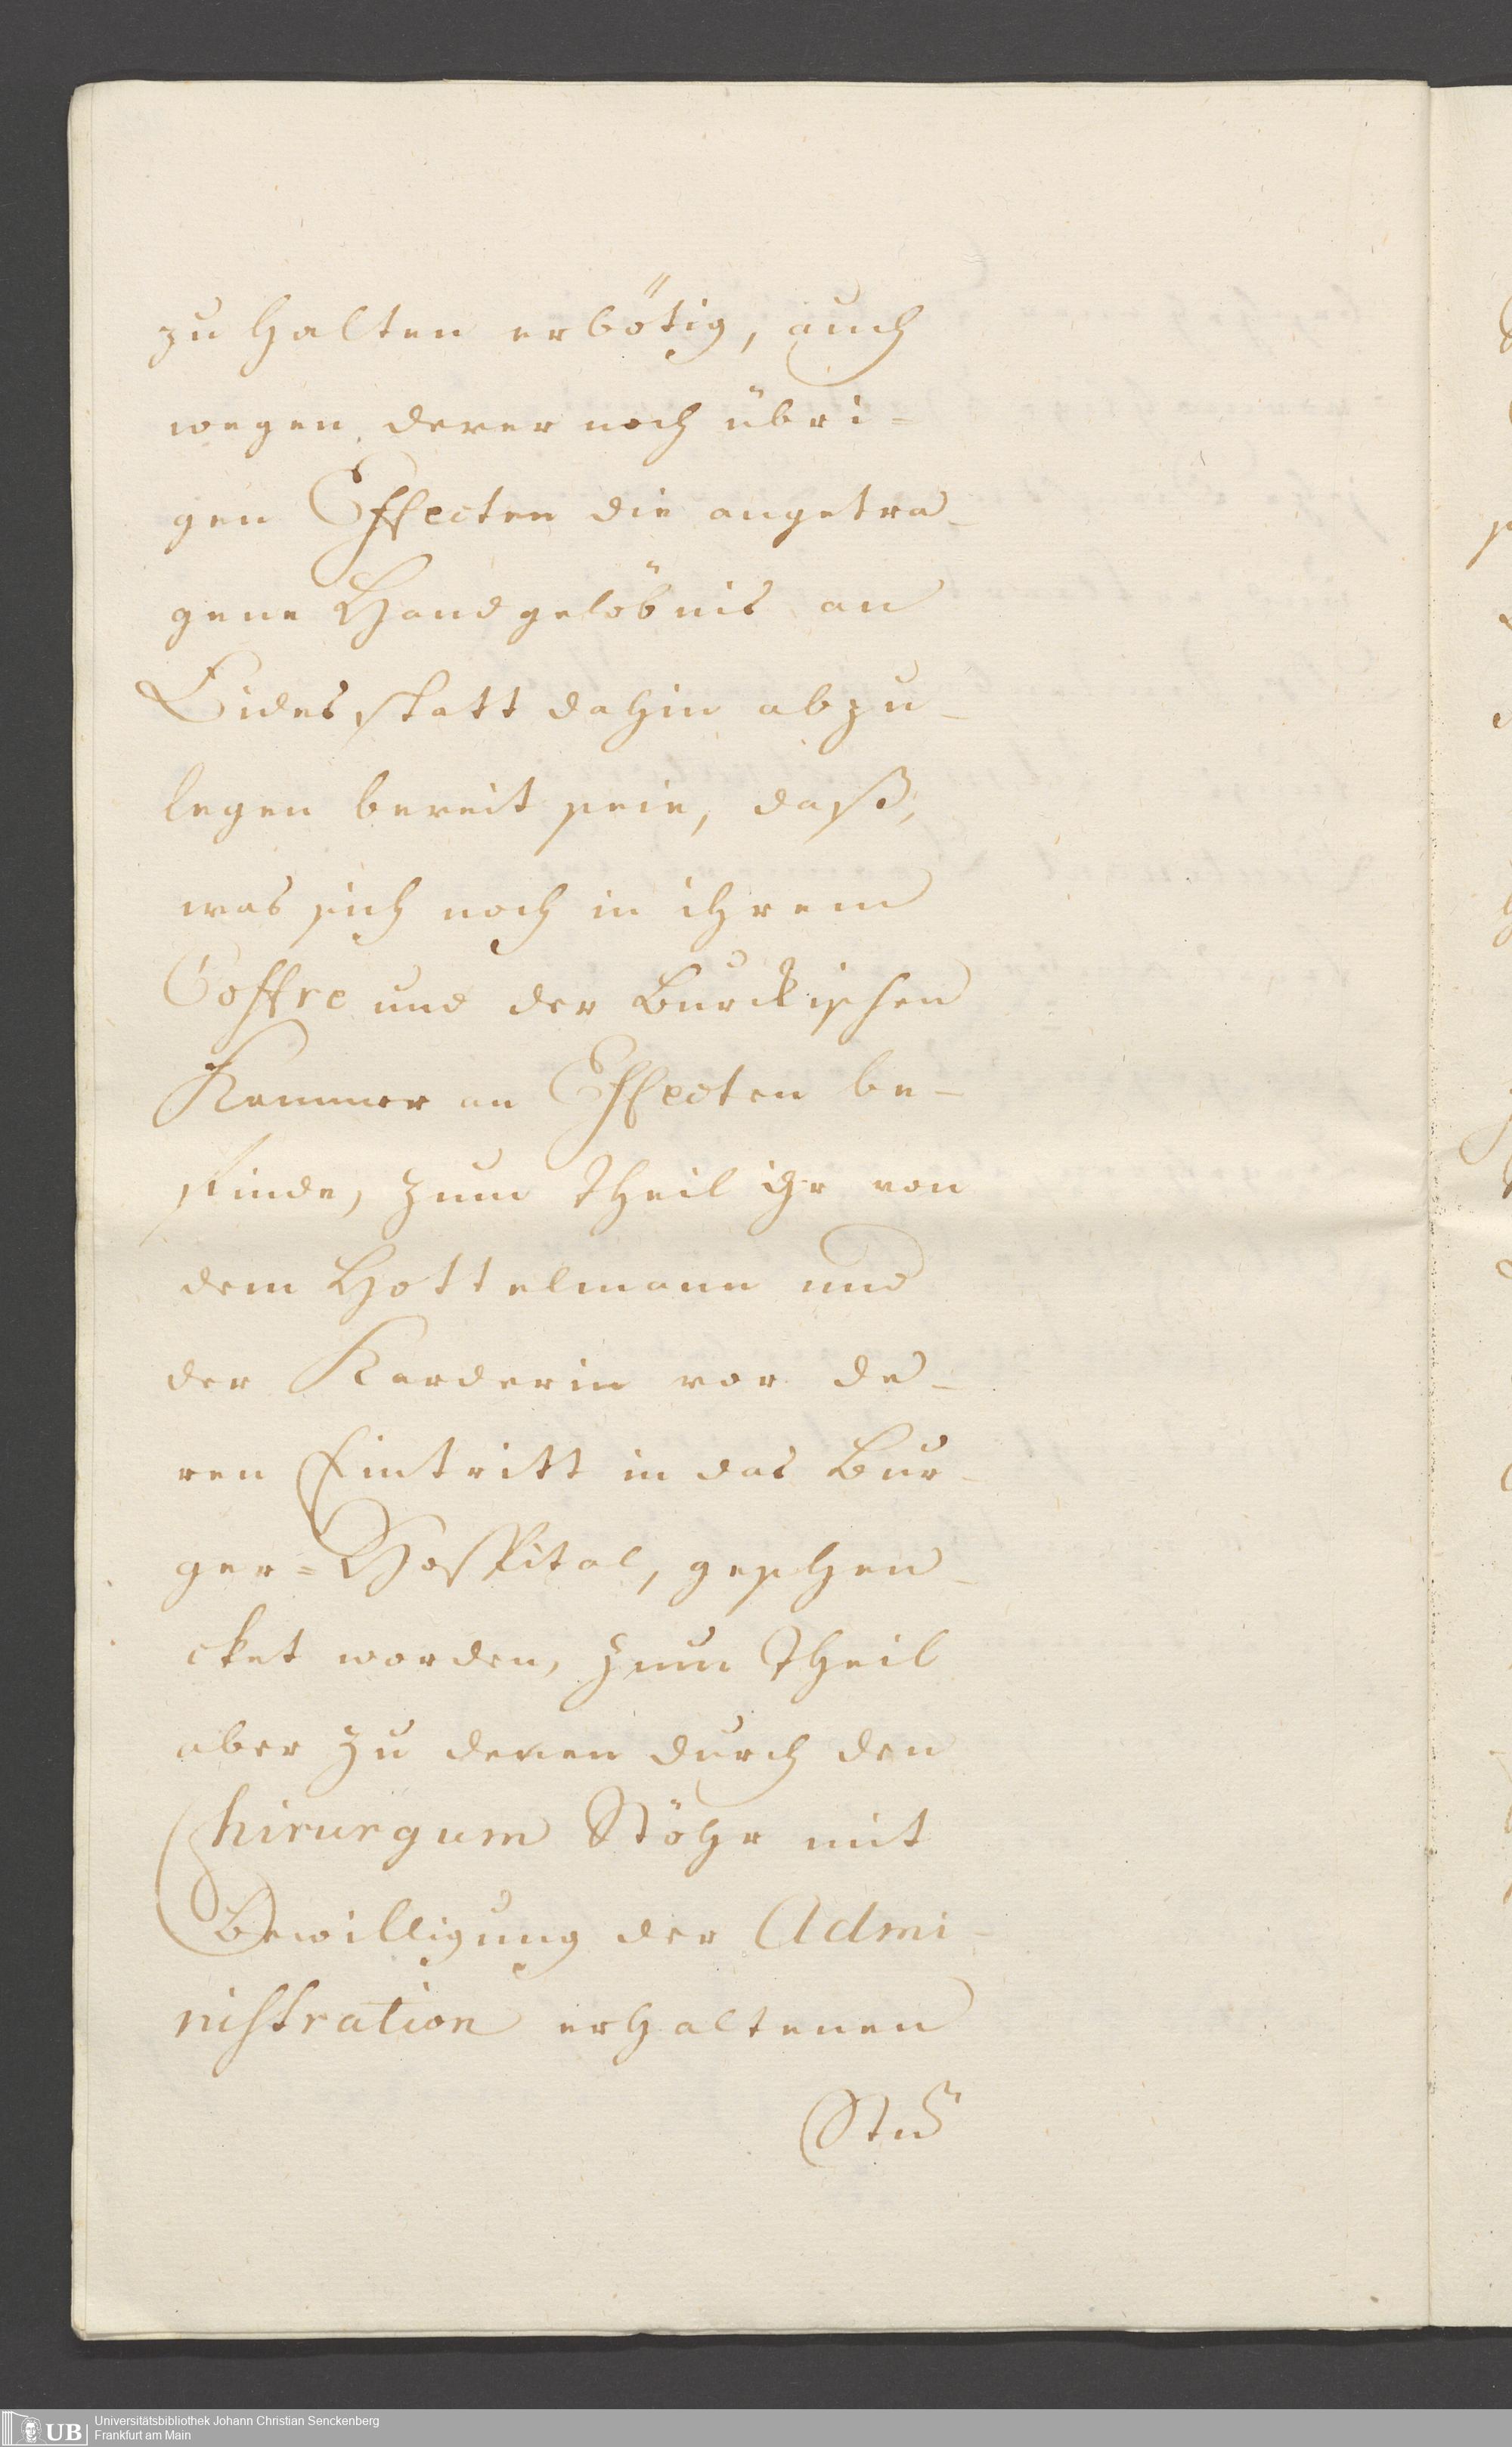 zu halten erbötig, auch
wegen derer noch übri-
gen Effecten die angetra-
gene Handgelöbnis an
Eides statt dahin abzu-
legen bereit seie, daß,
was sich noch in ihrem
Coffre und der Burckischen
Kammer an Effecten be-
finde, zum Theil ihr von
dem Hottelmann und
der Karderin vor de-
ren Eintritt in das Bur-
ger=Hospital, geschen-
cket worden, zum Theil
aber zu denen durch den
Chirurgum Stöhr mit
Bewilligung der Admi-
nistration erhaltenen
Stü
UB
Universitätsbibliothek Johann Christian Senckenberg
Frankfurt am Main